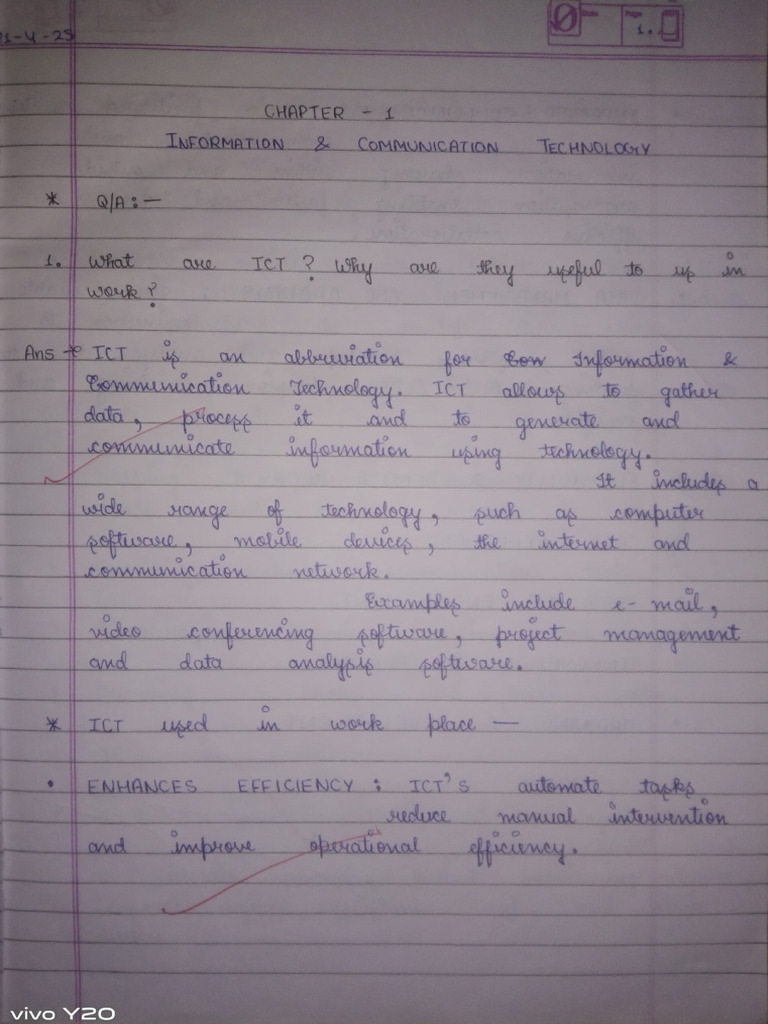 1-4-25
1.
CHAPTER - 1
INFORMATION & COMMUNICATION TECHNOLOGY
* Q/A:—
1. What are ICT ? Why are they useful to us in
work?
Ans → ICT is an abbreviation for Information &
Communication Technology. ICT allows to gather
data, process it and to generate and
communicate information using technology.
It includes a
wide range of technology, such as computer
software, mobile devices, the internet and
communication network.
Examples include e-mail,
video conferencing software, project management
and data analysis software.
* ICT used in work place —
• ENHANCES EFFICIENCY : ICT'S automate tasks
reduce manual intervention
and improve operational efficiency.
vivo Y20